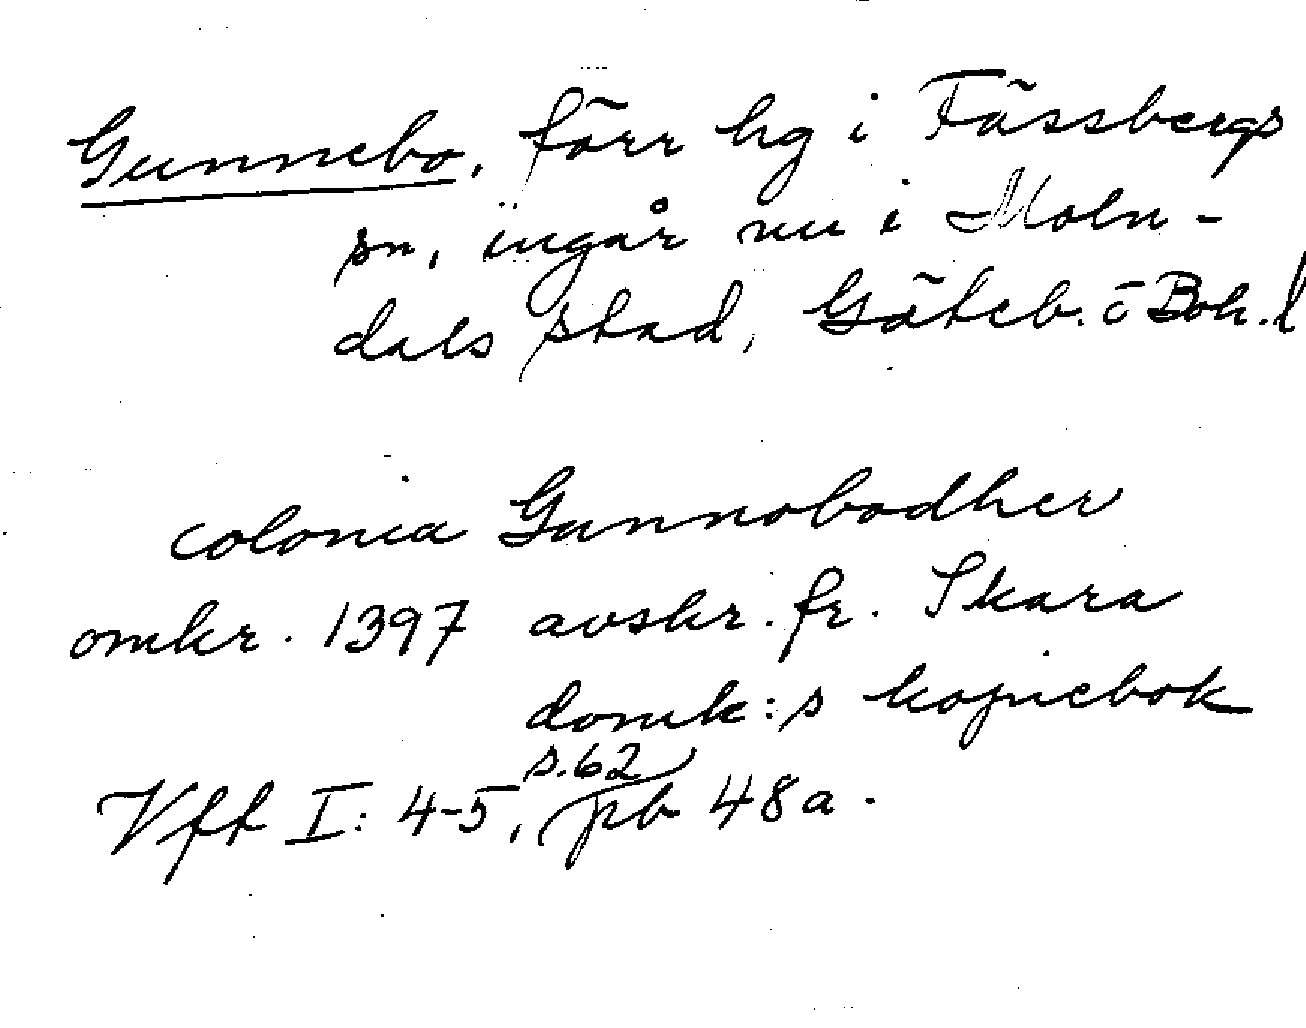 Gunnebo, förr hg i Fässbergs
sn, ingår nu i Möln-
dals stad, Göteb. o Boh. l
colonia Gunnobodher
omkr. 1397 avskr. fr. Skara
domk:s kopiebok
s.62
Vft I: 4-5, pb 48a.